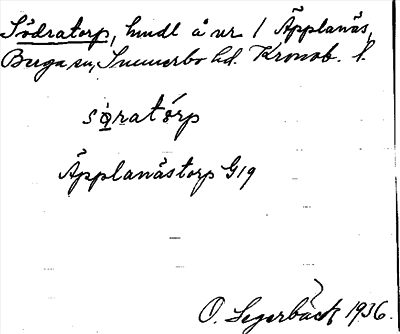 Södratorp, hmdl å nr 1 Äpplanäs,
Berga sn, Sunnerbo hd. Kronob. l.
sǫratórp
Äpplanästorp G19
O. Segerbäck 1936.